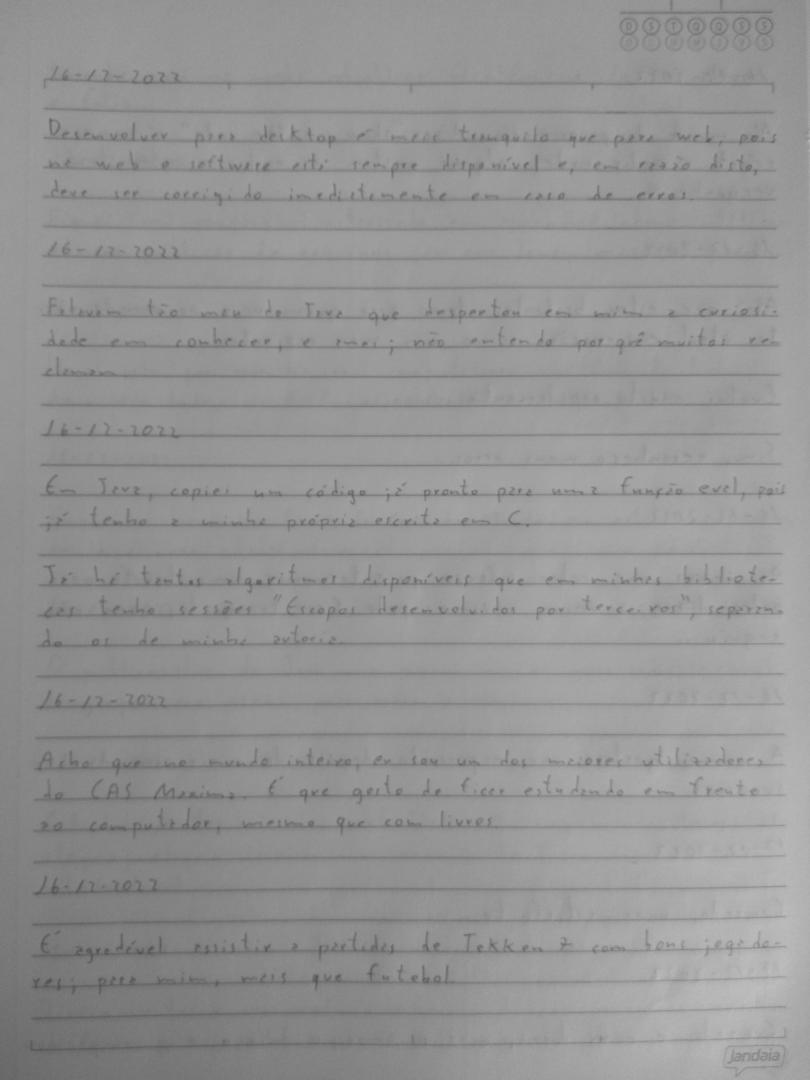 D S T Q Q S S
16-12-2022
Desenvolver para desktop é mais tranquilo que para web, pois
na web o software está sempre disponível e, em razão disto,
deve ser corrigido imediatamente em caso de erros.
16-12-2022
Falavam tão mau de Java que despertou em mim a curiosi-
dade em conhecer, e amei; não entendo por quê muitos re-
clamam.
16-12-2022
Em Java, copiei um código já pronto para uma função eval, pois
já tenho a minha própria escrita em C.
Já há tantos algoritmos disponíveis que em minhas bibliote-
cas tenho sessões "Escopos desenvolvidos por terceiros", separan-
do os de minha autoria.
16-12-2022
Acho que no mundo inteiro, eu sou um dos maiores utilizadores
do CAS Maxima. É que gosto de ficar estudando em frente
ao computador, mesmo que com livros.
16-12-2022
É agradável assistir a partidas de Tekken 7 com bons jogado-
res; para mim, mais que futebol.
jandaia